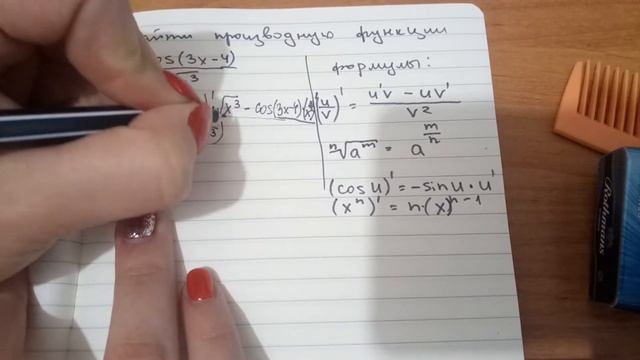 производную функции
cos(3x-4)
3
√x³ - cos(3x-4)
формулы:
(u/v)' = (u'v - uv')/v²
ⁿ√aᵐ = a^(m/n)
(cos u)' = -sin u · u'
(xⁿ)' = n·(x)ⁿ⁻¹
Rothmans